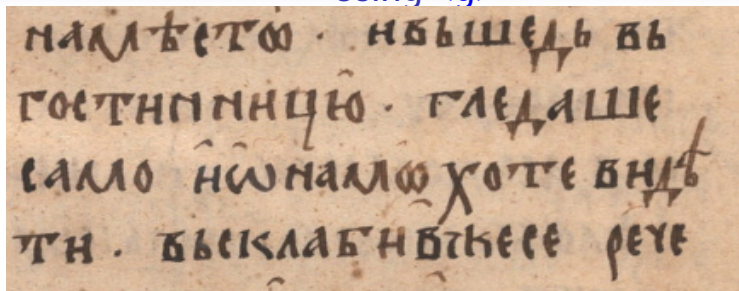 намѣсто҅ · нвьшедь вь
гостиннницю̑ · гледаше
само и҆ѡнамѡ хоте видѣ
ти · вьсклабив҅ьжесе рече